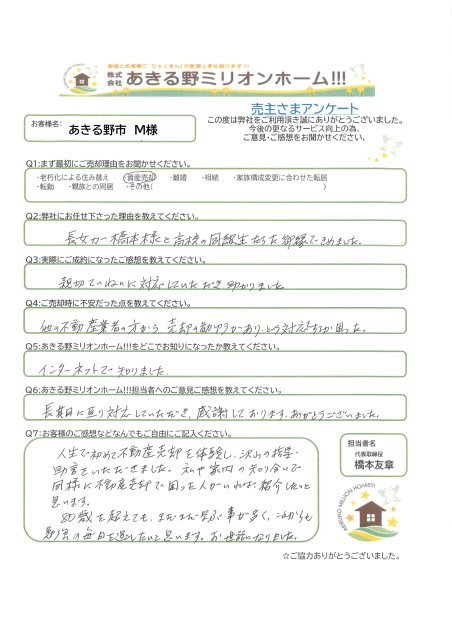 地域とお客様に「ひゃくまん」の笑顔と幸せ届けます!!!
株式会社 あきる野ミリオンホーム!!!
売主さまアンケート
お客様名: あきる野市 M様
この度は弊社をご利用頂き誠にありがとうございました。
今後の更なるサービス向上の為、
ご意見・ご感想をお聞かせください。
Q1:まず最初にご売却理由をお聞かせください。
・老朽化による住み替え ・資産売却 ・離婚 ・相続 ・家族構成変更に合わせた転居
・転勤 ・親族との同居 ・その他( )
Q2:弊社にお任せ下さった理由を教えてください。
長女が橋本様と高校の同級生だった御縁できめました。
Q3:実際にご成約になったご感想を教えてください。
親切ていねいに対応していただき助かりました。
Q4:ご売却時に不安だった点を教えてください。
他の不動産業者の方から売却の勧めがあり、どう対応するか困った。
Q5:あきる野ミリオンホーム!!!をどこでお知りになったか教えてください。
インターネットで知りました。
Q6:あきる野ミリオンホーム!!!担当者へのご意見ご感想を教えてください。
長期に亘り対応していただき、感謝しております。ありがとうございました。
Q7:お客様のご感想などなんでもご自由にご記入ください。
人生で初めて不動産売却を体験し、沢山の指導・
助言をいただきました。私や家内の知り合いで
同様に不動産売却で困った人がいれば紹介したいと
思います。
80歳を超えても、まだまだ学ぶ事が多く、これからも
勉強の毎日を過したいと思います。お世話になりました。
担当者名
代表取締役
橋本友章
AKIRUNO MILLION HOME!!!
☆ご協力ありがとうございました。